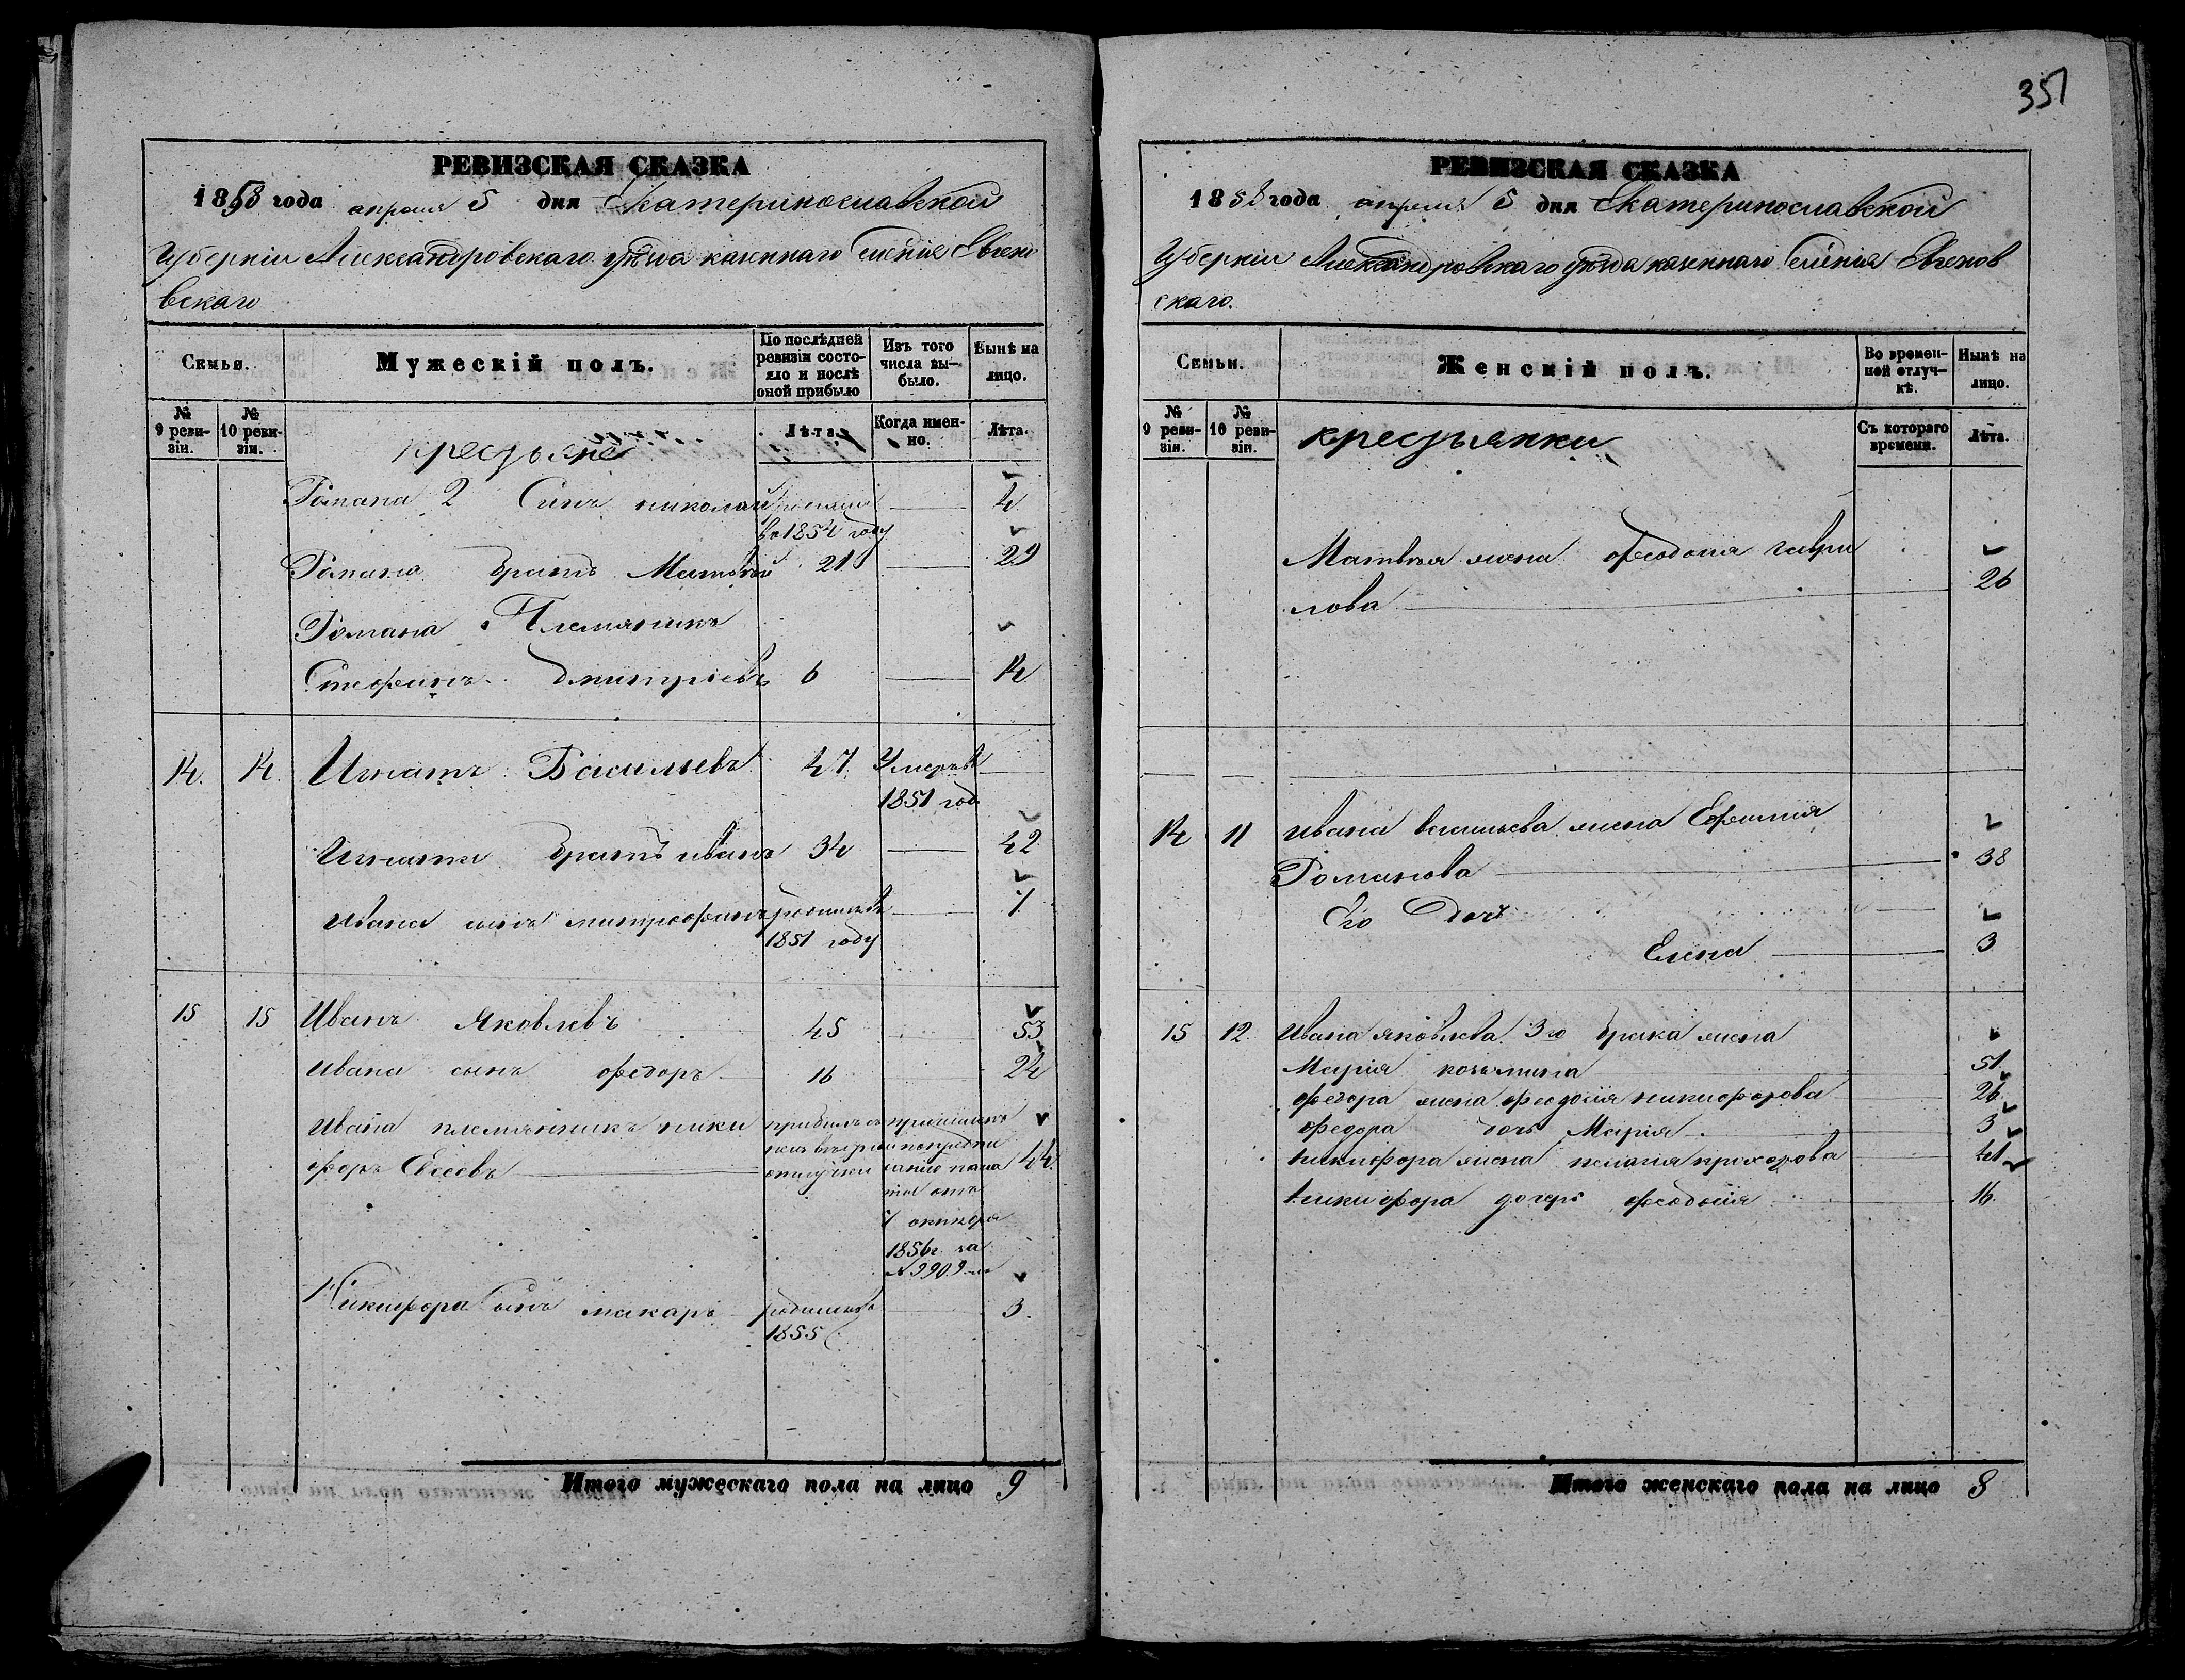 351
РЕВИЗСКАЯ СКАЗКА
1858 года апреля 5 дня Екатеринославской
Губерніи Александровскаго уѣзда казеннаго Селенія Евгено
вскаго
Семья.
Мужескій полъ.
По послѣдней ревизіи состояло и послѣ оной прибыло
Изъ того числа выбыло.
Нынѣ на лицо.
№ 9 ревизіи.
№ 10 ревизіи.
крестьяне
Лѣта.
Когда именно.
Лѣта.
Романа 2 Сынъ николай родился 4
въ 1854 году
Романа братъ Матвѣй 21 29
Романа Племяникъ
Стефанъ Дмитріевъ 6 14
14. 14. Игнатъ Васильевъ 47 Умеръ въ
1851 год
Игната братъ иванъ 34 42
Ивана сынъ митрофанъ родился въ 7
1851 году
15 15 Иванъ Яковлевъ 45 53
Ивана сынъ федоръ 16 24
Ивана племянникъ ники
форъ Евсеевъ 44.
отъ
7 октября
1856г. за
№ 9909
Никифора сынъ макаръ родился 3.
1855
Итого мужескаго пола на лицо 9
РЕВИЗСКАЯ СКАЗКА
1858 года апреля 5 дня Екатеринославской
Губерніи Александровскаго уѣзда казеннаго Селенія Евгенов
скаго.
Семьи.
Женскій полъ.
Во временной отлучкѣ.
Нынѣ на лицо.
№ 9 ревизіи.
№ 10 ревизіи.
крестьянки
Съ котораго времени.
Лѣта.
Матвѣя жена феодосія гаври
лова 26
14 11 Ивана васильева жена Ефимія
Романова 38
Его Дочь
Елена 3
15 12. Ивана яковлева 3го брака жена
Марія козьмина 51
федора жена феодосія никифорова 26
федора дочь Марія 3
никифора жена прохорова 41
никифора дочерь феодосія 16.
Итого женскаго пола на лицо 8